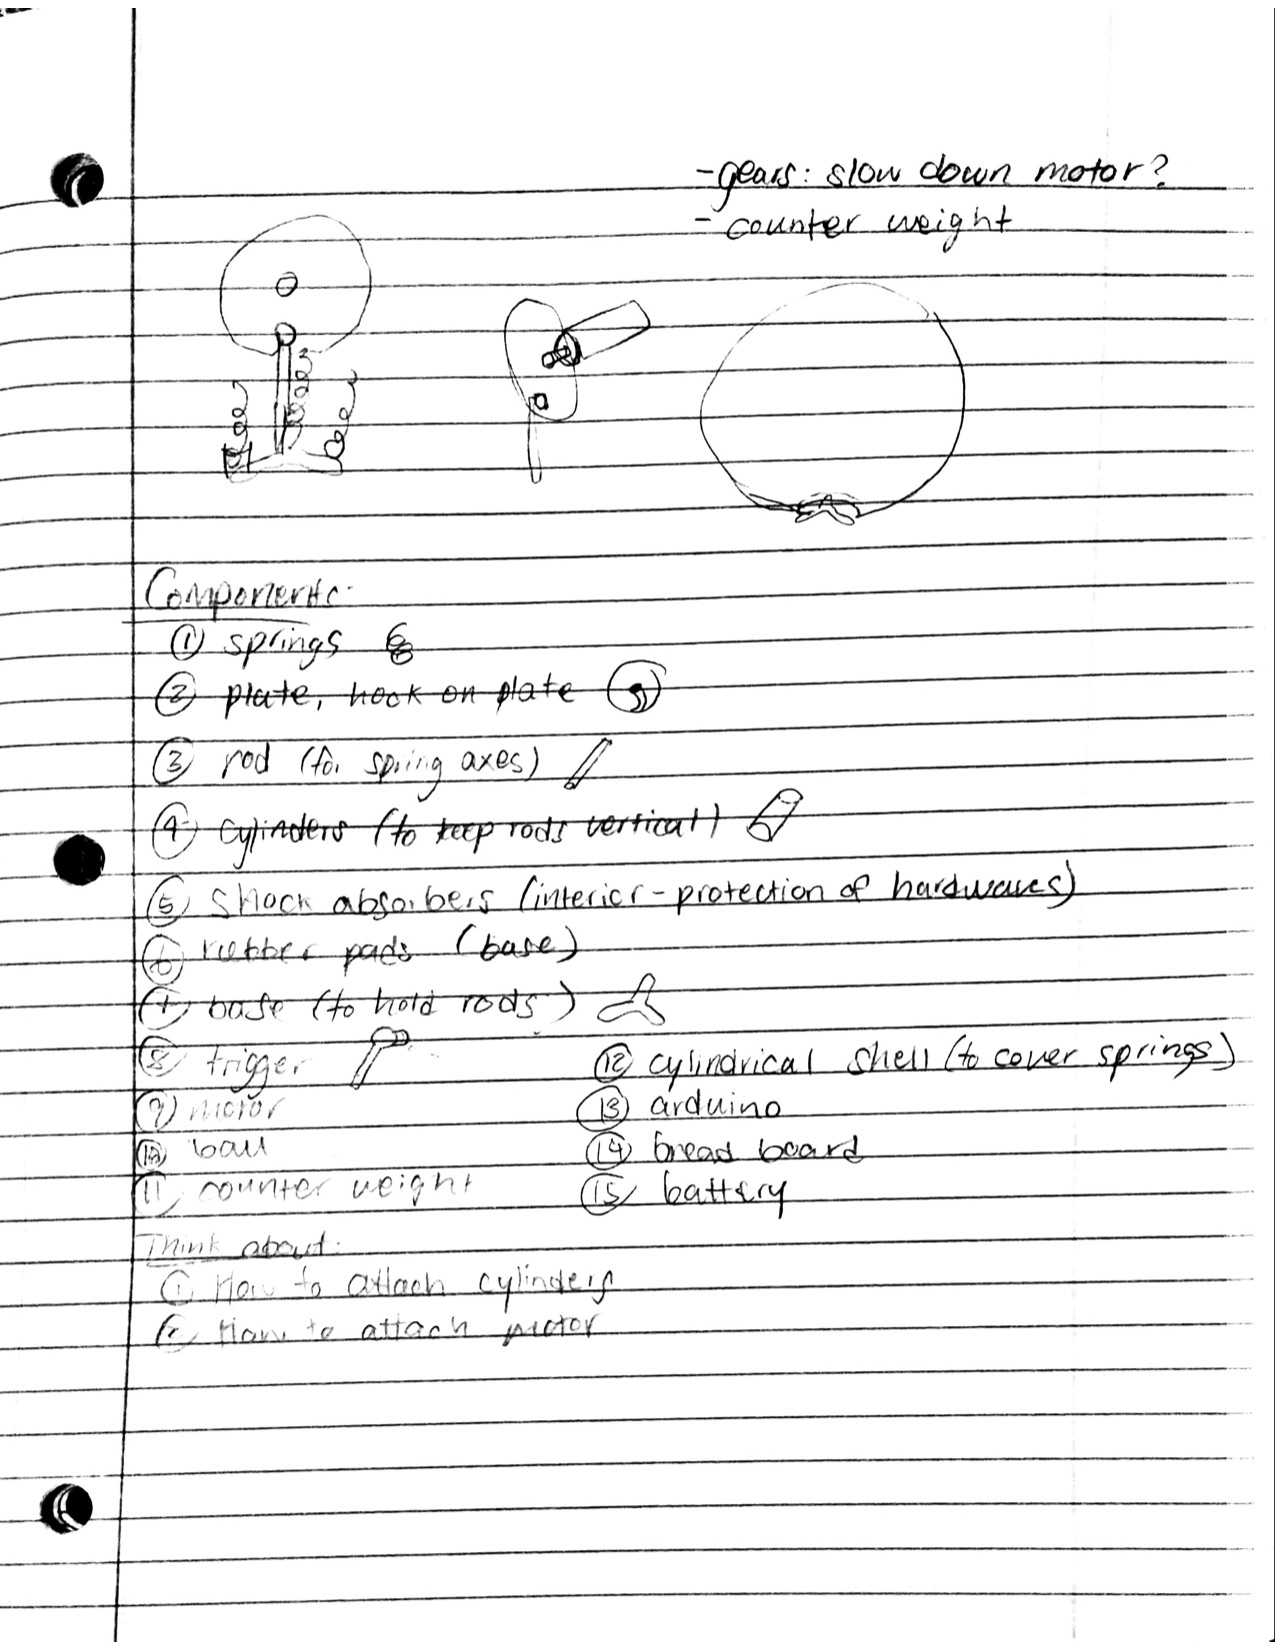 -gears: slow down motor?
- counter weight
Components:
① springs
② plate, hook on plate
③ rod (for spring axes)
④ cylinders (to keep rods vertical)
⑤ shock absorbers (interior-protection of hardwares)
⑥ rubber pads (base)
⑦ base (to hold rods)
⑧ trigger
⑨ motor
⑩ ball
⑪ counter weight
⑫ cylindrical shell (to cover springs)
⑬ arduino
⑭ bread board
⑮ battery
Think about:
① How to attach cylinders
② How to attach motor